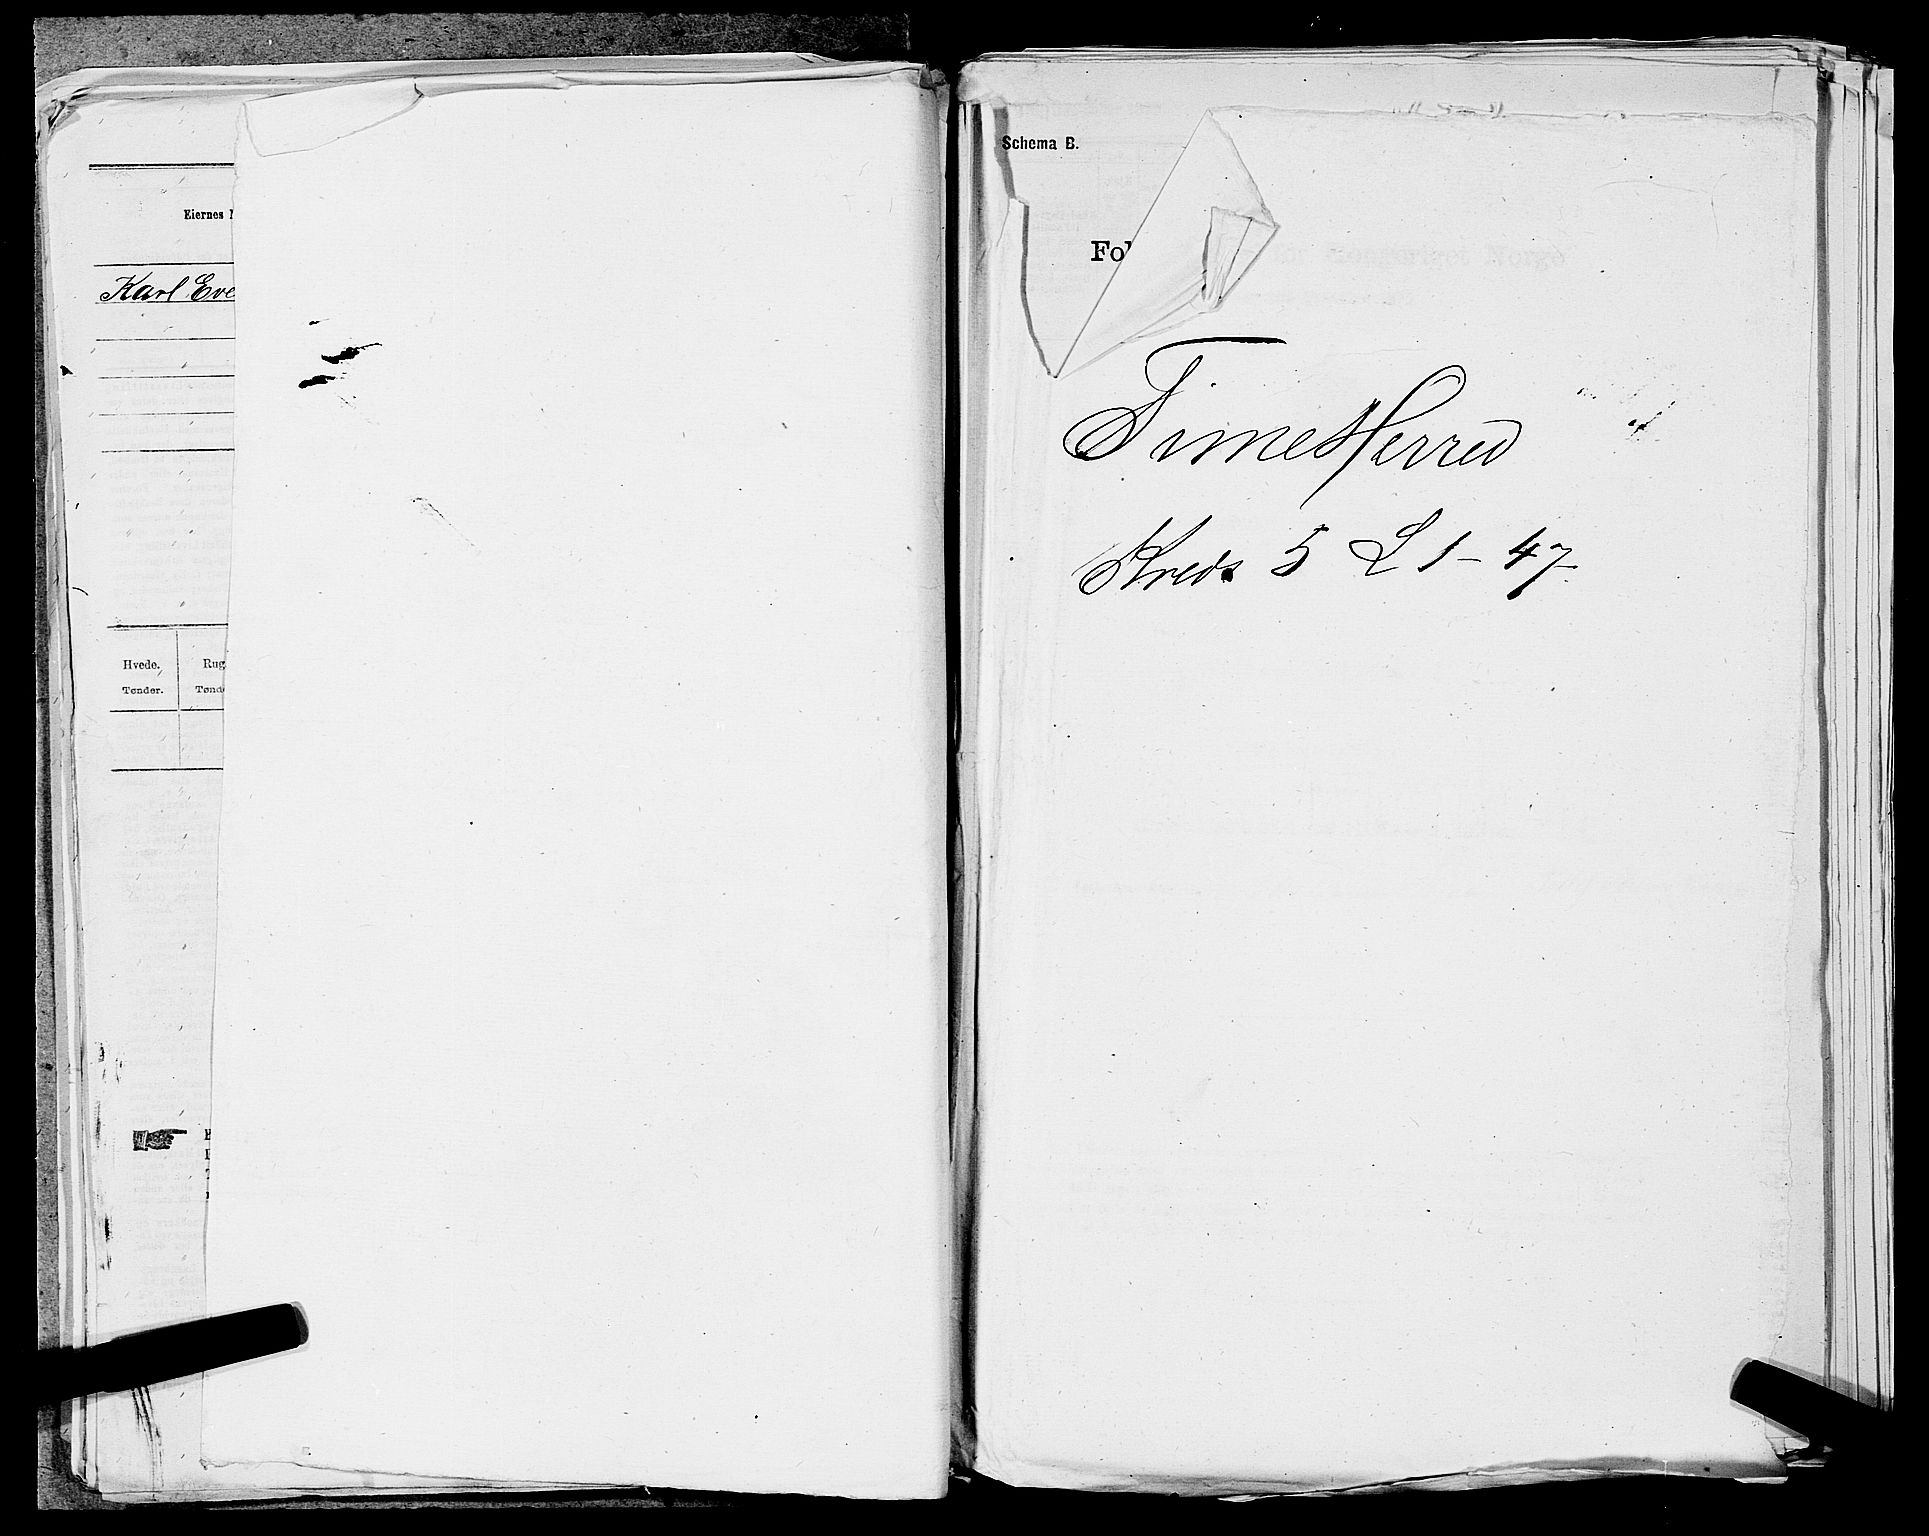 Eiernes
Karl Eve
Hvede. Rug
Tønder. Tønd
Schema B.
Fol
for Kongeriget Norge
Time Herred
Kreds 5 L 1 - 47